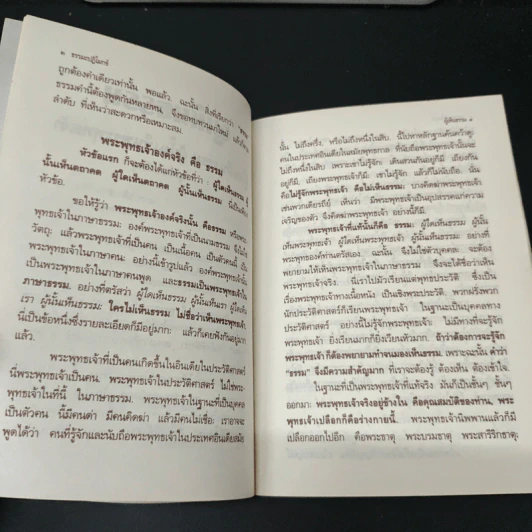 ๒ ธรรมะปฏิโมกข์
ถูกต้องคำเดียวเท่านั้น พอแล้ว. ฉะนั้น สิ่งที่เรียกว่า "ธรรม"
ธรรมคำนี้ต้องพูดกันหลายหน, จึงขอทบทวนมาใหม่ แล้วก็ตาม
ลำดับ ที่เห็นว่าสะดวกหรือเหมาะสม.
พระพุทธเจ้าองค์จริง คือ ธรรม
หัวข้อแรก ก็จะต้องได้แก่หัวข้อที่ว่า ผู้ใดเห็นธรรม ผู้
นั้นเห็นตถาคต ผู้ใดเห็นตถาคต ผู้นั้นเห็นธรรม นี้เป็นตัว
หัวข้อ.
ขอให้รู้ว่า พระพุทธเจ้าองค์จริงนั้น คือธรรม หรือพระ
พุทธเจ้าในภาษาธรรม: องค์พระพุทธเจ้าที่เป็นนามธรรม มิใช่ใน
วัตถุ: แล้วพระพุทธเจ้าที่เป็นคน เป็นเนื้อคน เป็นตัวคนนี้ เป็น
พระพุทธเจ้าในภาษาคน: อย่างนี้เข้ารูปแล้ว องค์พระพุทธเจ้านั้น
เป็นพระพุทธเจ้าในภาษาคนพูด และธรรมะเป็นพระพุทธเจ้าใน
ภาษาธรรม. อย่างที่ตรัสว่า ผู้ใดเห็นธรรม ผู้นั้นเห็นเรา ผู้ใดเห็น
เรา ผู้นั้นเห็นธรรม: ใครไม่เห็นธรรม ไม่ชื่อว่าเห็นพระพุทธเจ้า
นี้เป็นข้อหนึ่งซึ่งรายละเอียดก็มีอยู่มาก: แล้วก็เคยฟังกันอยู่มาก
แล้ว.
พระพุทธเจ้าที่เป็นคนเกิดขึ้นในอินเดียในประวัติศาสตร์
นี่พระพุทธเจ้าเป็นคน: พระพุทธเจ้าในประวัติศาสตร์ ไม่ใช่พระ
พุทธเจ้าในทีนี้ ในภาษาธรรม. พระพุทธเจ้าในฐานะที่เป็นบุคคล
เป็นตัวคน นี้มีคนด่า มีคนคิดฆ่า แล้วมีคนไม่เชื่อ: เราอาจจะ
พูดได้ว่า คนที่รู้จักและนับถือพระพุทธเจ้าในประเทศอินเดียสมัย
ผู้เห็นธรรม ๓
นั้น ไม่ถึงครึ่ง, หรือไม่ถึงหนึ่งในสิบ. นี้ไปหาหลักฐานค้นคว้าดู:
คนในประเทศอินเดียในสมัยพุทธกาล ที่นับถือพระพุทธเจ้าอาจจะ
ไม่ถึงหนึ่งในสิบ เพราะเขาไม่รู้จัก: เดินสวนกันอยู่ก็มี เถียงกัน
อยู่ก็มี, เถียงพระพุทธเจ้าก็มี: เขาไม่รู้จัก แล้วก็ไม่นับถือ. นี่
คือ ไม่รู้จักพระพุทธเจ้า คือไม่เห็นธรรม. บางคิดฆ่าพระพุทธเจ้า
เช่นพวกเดียรถีย์ เห็น ว่า มีพระพุทธเจ้าเป็นอุปสรรคแก่ความ
เจริญของตัว จึงคิดฆ่าพระพุทธเจ้า อย่างนี้ก็มี.
พระพุทธเจ้าที่แท้นั้นก็คือ ธรรม: ผู้ใดเห็นธรรม ผู้นั้น
เห็นพระพุทธเจ้า ผู้ใดเห็นพระพุทธเจ้า ผู้นั้นเห็นธรรม: อย่างที่
พระพุทธเจ้าท่านตรัสเอง. ฉะนั้น จะไม่ใช่ตัวบุคคลละ จะต้อง
พยายามให้เห็นพระพุทธเจ้าในภาษาธรรม จึงจะได้ชื่อว่าเห็น
พระพุทธเจ้าจริง: นี่เราไปมัวเรียนแต่พุทธประวัติ ซึ่งเป็น
เรื่องพระพุทธเจ้าทางเนื้อหนัง เป็นเชิงพระประวัติ. พวกฝรั่งพวก
นักประวัติศาสตร์ก็เรียกพระพุทธเจ้า ในฐานะเป็นบุคคลทาง
ประวัติศาสตร์ อย่างนี้ไม่รู้จักพระพุทธเจ้า: ไม่มีทางที่จะรู้จัก
พระพุทธเจ้า ยิ่งเรียนมากก็ยิ่งเวียนหัวมาก. ถ้าว่าต้องการจะรู้จัก
พระพุทธเจ้า ก็ต้องพยายามทำจนมองเห็นธรรม. เพราะฉะนั้น คำว่า
"ธรรม" จึงมีความสำคัญมาก ที่เราจะต้องรู้ ต้องเห็น ต้องเข้าใจ
ในฐานะที่เป็นพระพุทธเจ้าที่แท้จริง มันก็เป็นชั้นๆ
ออกมา: พระพุทธเจ้าจริงอยู่ข้างใน คือคุณสมบัติของท่าน, พระ
พุทธเจ้าเปลือกก็คือร่างกายนี้. พระพุทธเจ้านิพพานแล้วก็มี
เปลือกออกไปอีก คือพระธาตุ พระบรมธาตุ พระสารีริกธาตุ: